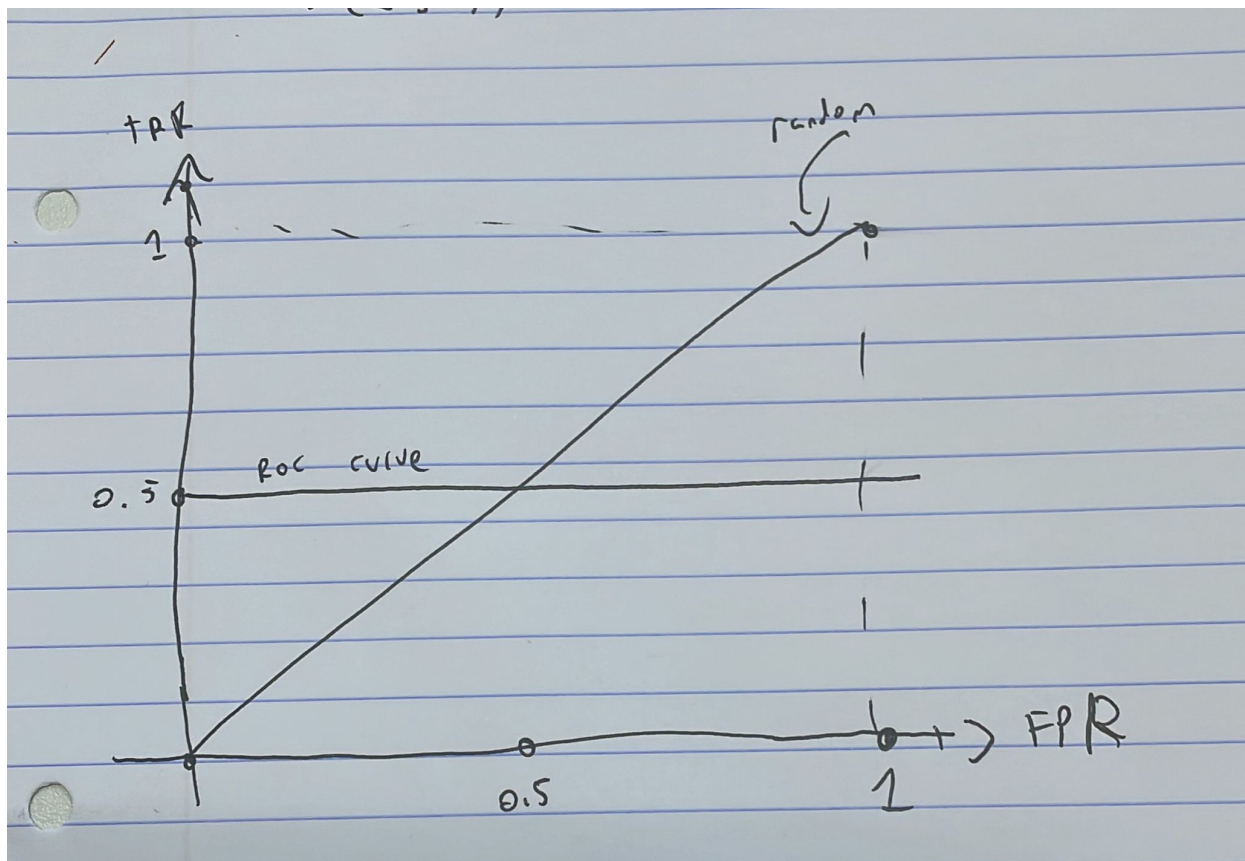 TPR
random
1
ROC curve
0.5
FPR
0.5
1